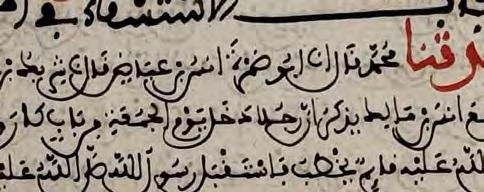 الاستسقاء في
حدثنا محمد قال انا ابو ضمرة انس بن عياض قال نا شريك بن
انس بن مالك يذكر ان رجلا دخل يوم الجمعة من باب كان و
الله عليه قايم يخطب فاستقبل رسول الله صلى الله عليه